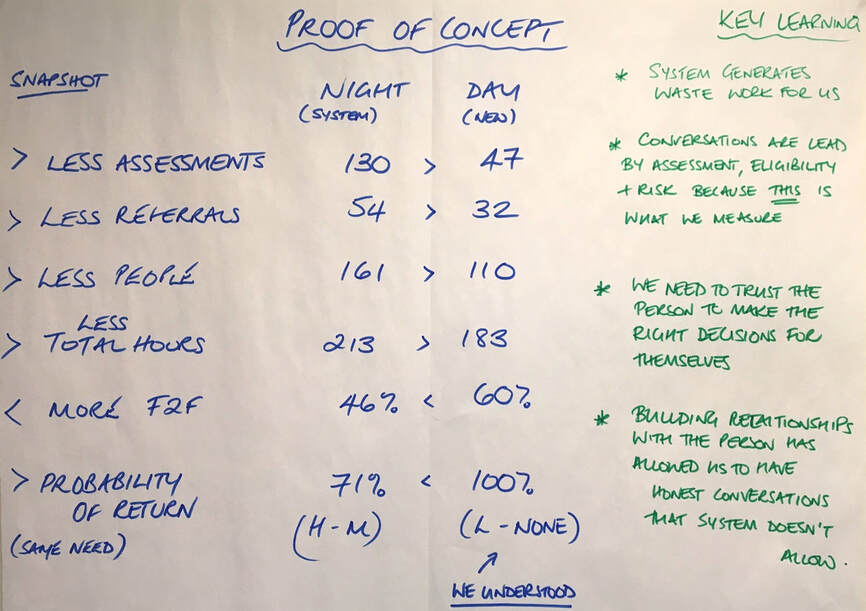 PROOF OF CONCEPT
SNAPSHOT NIGHT DAY
(SYSTEM) (NEW)
> LESS ASSESSMENTS 130 > 47
> LESS REFERRALS 54 > 32
> LESS PEOPLE 161 > 110
LESS
> TOTAL HOURS 213 > 183
< MORE F2F 46% < 60%
> PROBABILITY 71% < 100%
OF RETURN
(SAME NEED) (H-M) (L-NONE)
WE UNDERSTOOD
KEY LEARNING
* SYSTEM GENERATES
WASTE WORK FOR US
* CONVERSATIONS ARE LEAD
BY ASSESSMENT, ELIGIBILITY
+ RISK BECAUSE THIS IS
WHAT WE MEASURE
* WE NEED TO TRUST THE
PERSON TO MAKE THE
RIGHT DECISIONS FOR
THEMSELVES
* BUILDING RELATIONSHIPS
WITH THE PERSON HAS
ALLOWED US TO HAVE
HONEST CONVERSATIONS
THAT SYSTEM DOESN'T
ALLOW.